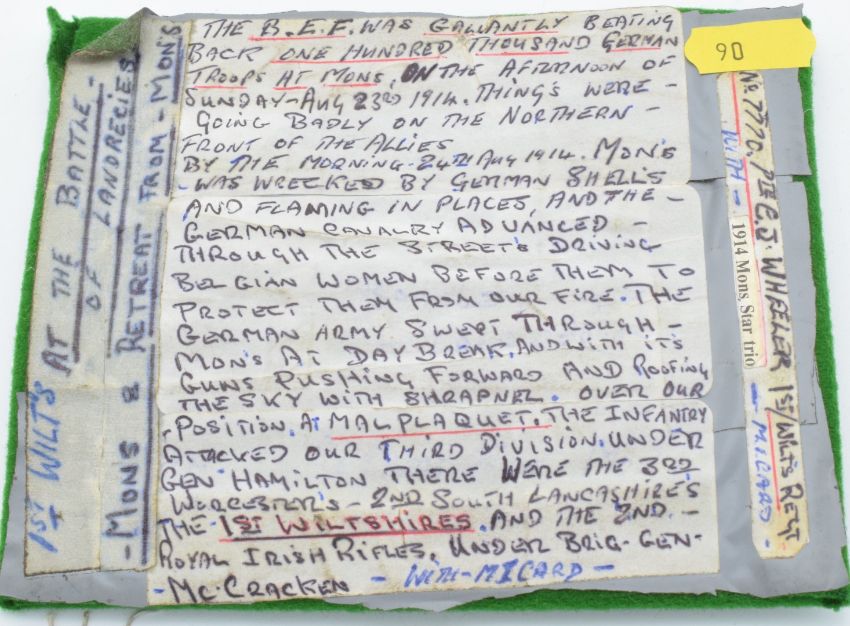 THE B.E.F. WAS GALLANTLY BEATING
BACK ONE HUNDRED THOUSAND GERMAN
TROOPS AT MONS, ON THE AFTERNOON OF
SUNDAY-AUG 23RD 1914. THING'S WERE -
GOING BADLY ON THE NORTHERN -
FRONT OF THE ALLIES
BY THE MORNING-24TH AUG 1914. MON'S
-WAS WRECKED BY GERMAN SHELL'S
AND FLAMING IN PLACES, AND THE -
GERMAN CAVALRY ADVANCED -
THROUGH THE STREET'S DRIVING
BELGIAN WOMEN BEFORE THEM TO
PROTECT THEM FROM OUR FIRE. THE
GERMAN ARMY SWEPT THROUGH -
MON'S AT DAY BREAK, AND WITH IT'S
GUNS PUSHING FORWARD AND ROOFING
THE SKY WITH SHRAPNEL. OVER OUR
POSITION. AT MALPLAQUET. THE INFANTRY
ATTACKED OUR THIRD DIVISION. UNDER
GEN HAMILTON THERE WERE THE 3RD
WORCESTER'S - 2ND SOUTH LANCASHIRE'S
THE 1ST WILTSHIRES. AND THE 2ND -
ROYAL IRISH RIFLES. UNDER BRIG-GEN-
-MC.CRACKEN - WITH-MICARD -
1ST WILT'S AT THE BATTLE -
+ OF LANDRECIES
-MONS & RETREAT FROM-MONS
90
No. 7770. PTE E.J WHEELER 1ST/WILT'S REGT
WITH - 1914 Mons, Star trio - MICARD -